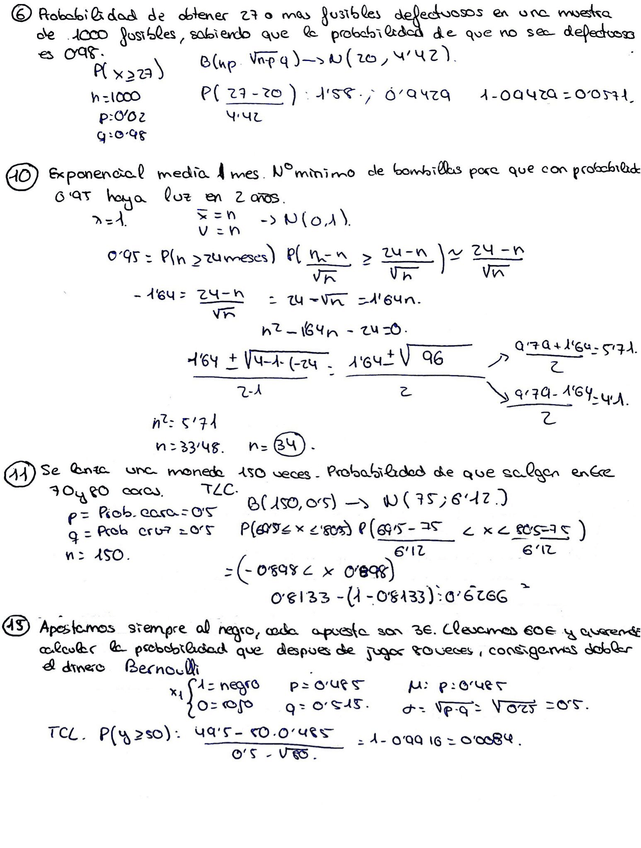 ⑥ Probabilidad de obtener 27 o mas fusibles defectuosos en una muestra
de 1000 fusibles, sabiendo que la probabilidad de que no sea defectuoso
es 0'98.
P(x≥27) B(np √npq) → N(20, 4'42).
n=1000 P(27-20 / 4'42) : 1'58 ; 0'9429 1-0'9429=0'0571.
p=0'02
q=0'98
⑩ Exponencial media 1 mes. Nº minimo de bombillas para que con probabilidad
0'95 haya luz en 2 años.
λ=1. x̄=n
V=n → N(0,1).
0'95 = P(n ≥ 24 meses) P(n-n / √n ≥ 24-n / √n) ≈ 24-n / √n
-1'64 = 24-n / √n = 24-√n = 1'64n.
n²-1'64n-24=0.
1'64 ± √4-1·(-24 / 2·1 = 1'64 ± √96 / 2
9'79+1'64 / 2 = 5'71
9'79-1'64 / 2 = 4'1.
n² = 5'71
n=33'48. n=34.
⑪ Se lanza una moneda 150 veces. Probabilidad de que salgan entre
70 y 80 caras. TLC.
p = Prob. cara = 0'5 B(150, 0'5) → N(75; 6'12.)
q = Prob cruz = 0'5 P(69'5 ≤ x ≤ 80'5) P(69'5-75 / 6'12 < x < 80'5-75 / 6'12)
n = 150.
= (-0'898 < x 0'898)
0'8133 - (1-0'8133) : 0'6266
⑮ Apostamos siempre al negro, cada apuesta son 3€. Llevamos 60€ y queremos
calcular la probabilidad que despues de jugar 80 veces, consigamos doblar
el dinero Bernoulli
x₁ { 1 = negro p=0'485 μ: p=0'485
0 = rojo q=0'515. σ = √p·q = √0'25 = 0'5.
TCL. P(y ≥ 50) : 49'5 - 50·0'485 / 0'5 - √80. = 1-0'9916 = 0'0084.